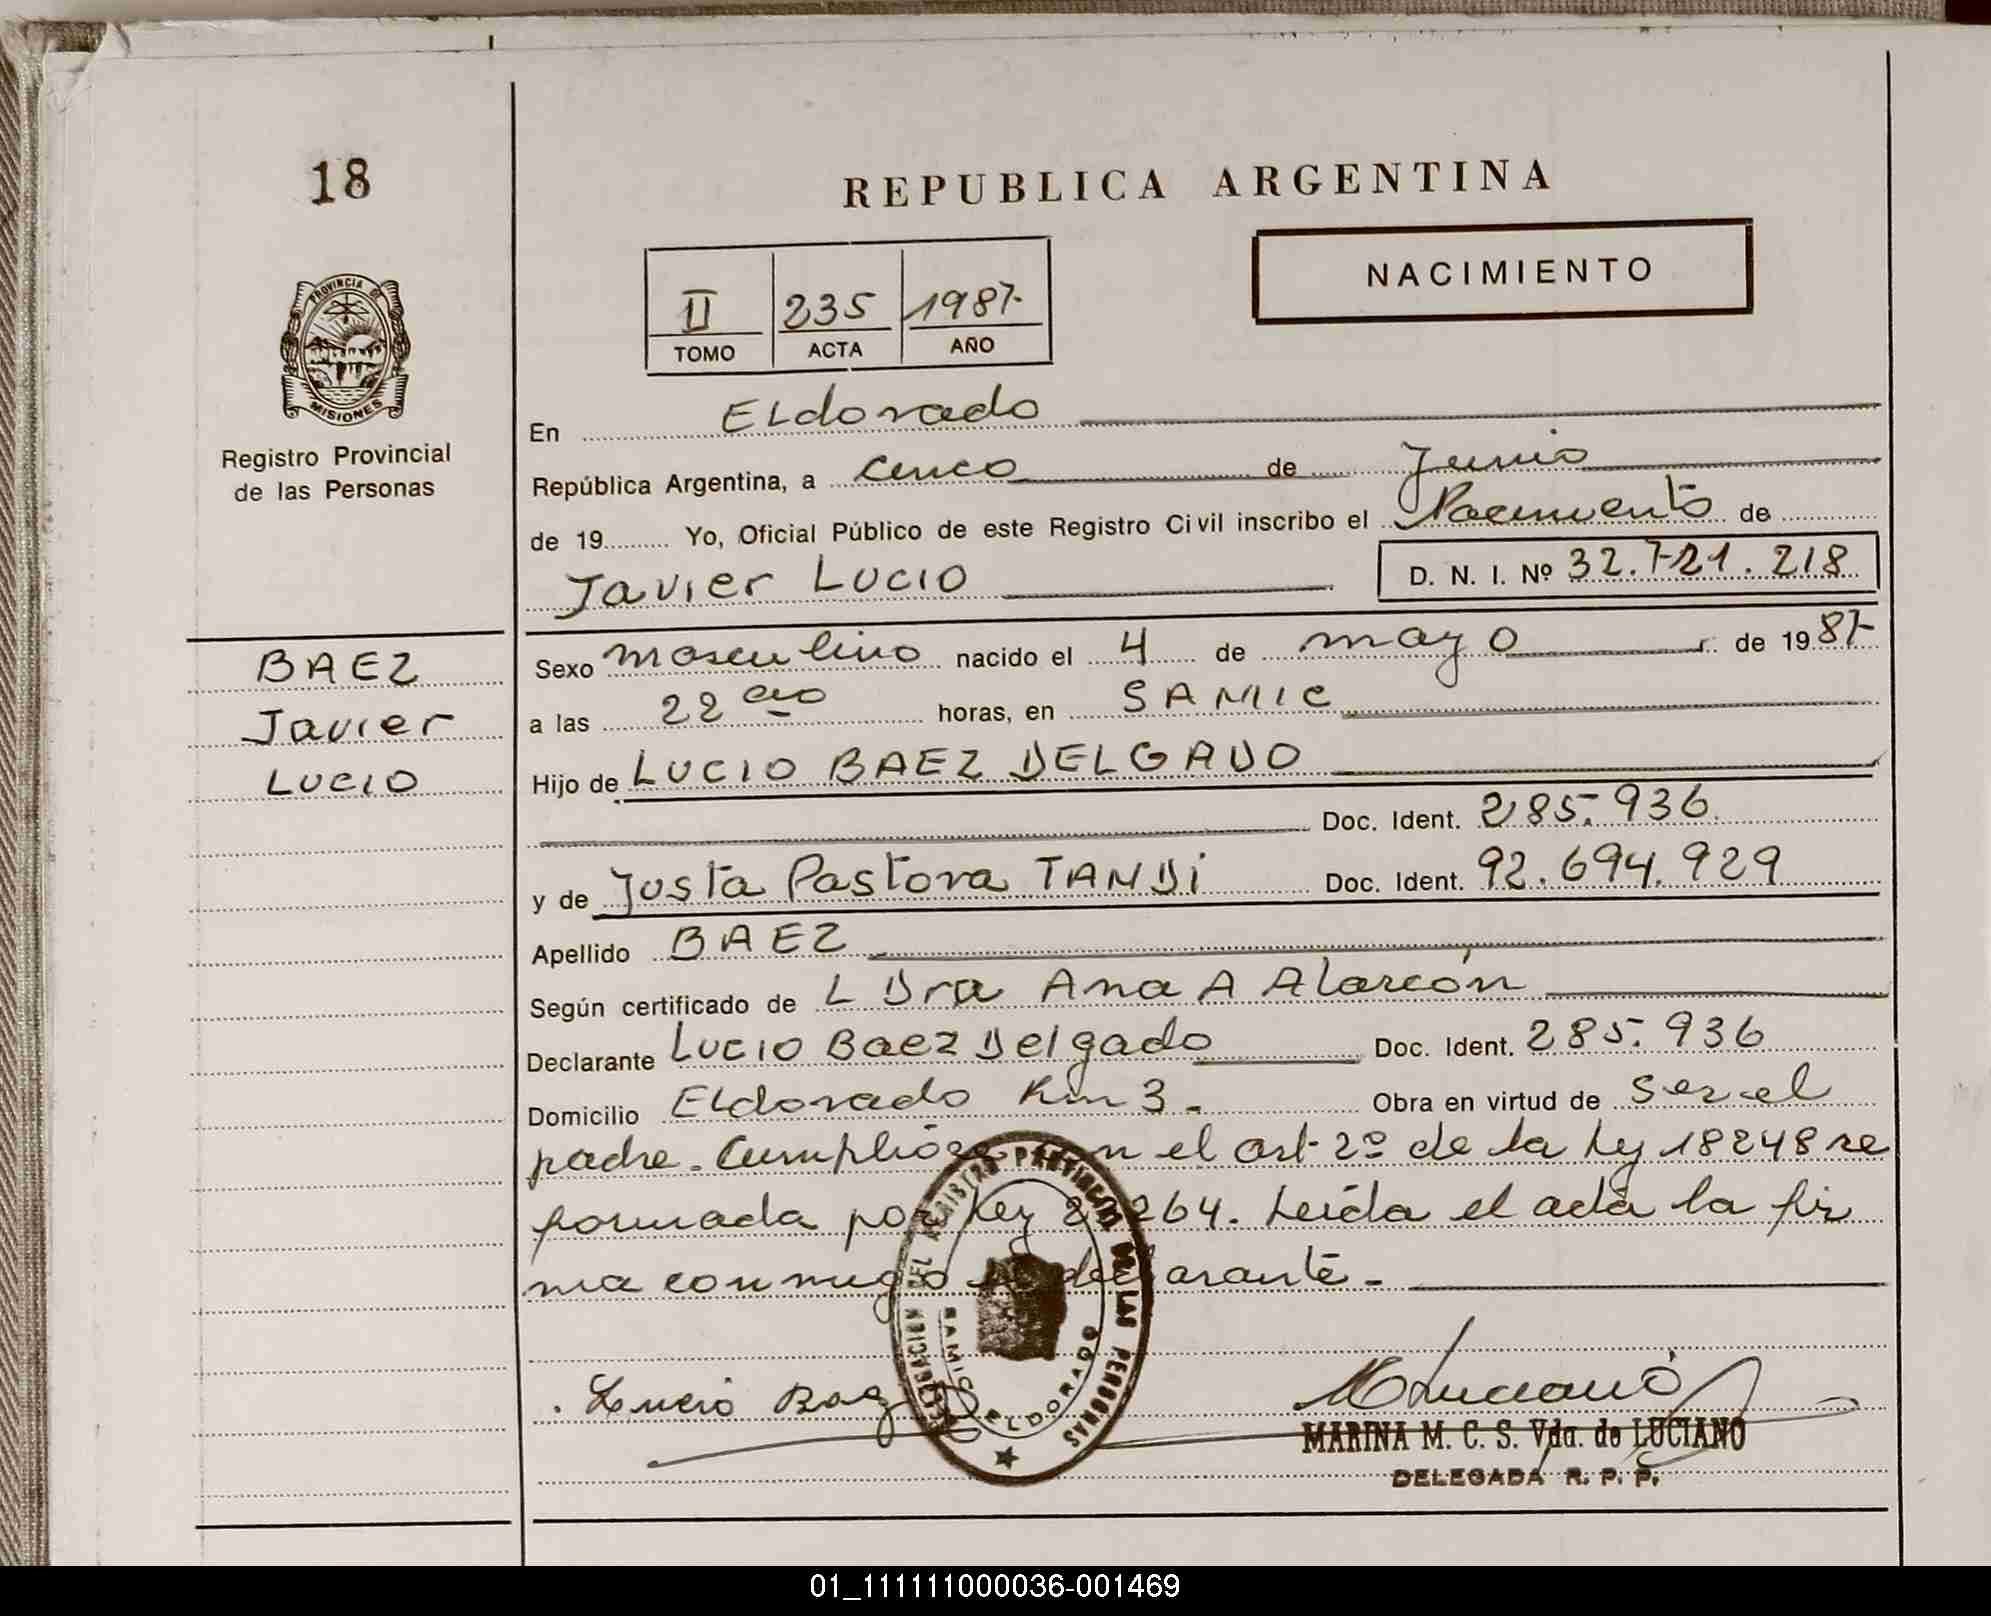 18
REPUBLICA ARGENTINA
NACIMIENTO
II 235 1987
TOMO ACTA AÑO
PROVINCIA DE
MISIONES
Registro Provincial
de las Personas
En ELdorado
República Argentina, a cinco de Junio
de 19 Yo, Oficial Público de este Registro Civil inscribo el Nacimiento de
Javier LUCIO D. N. I. Nº 32.721.218
BAEZ
Javier
LUCIO
Sexo masculino nacido el 4 de mayo de 1987
a las 22 horas, en SAMIC
Hijo de LUCIO BAEZ DELGADO
Doc. Ident. 285.936
y de Justa Pastora TANDi Doc. Ident. 92.694.929
Apellido BAEZ
Según certificado de L Dra Ana A Alarcón
Declarante LUCIO Baez Delgado Doc. Ident. 285.936
Domicilio ELdorado Km 3 - Obra en virtud de ser el
padre. Cumplióse con el art 2º de la Ley 18248 re
formada por Ley 23264. Leída el acta la fir
ma conmigo el declarante.-
DELEGACION DEL REGISTRO PROVINCIAL DE LAS PERSONAS
SAMIC ELDORADO
Lucio Baez D
MLuciano
MARINA M. C. S. Vda. de LUCIANO
DELEGADA R. P. P.
01_111111000036-001469